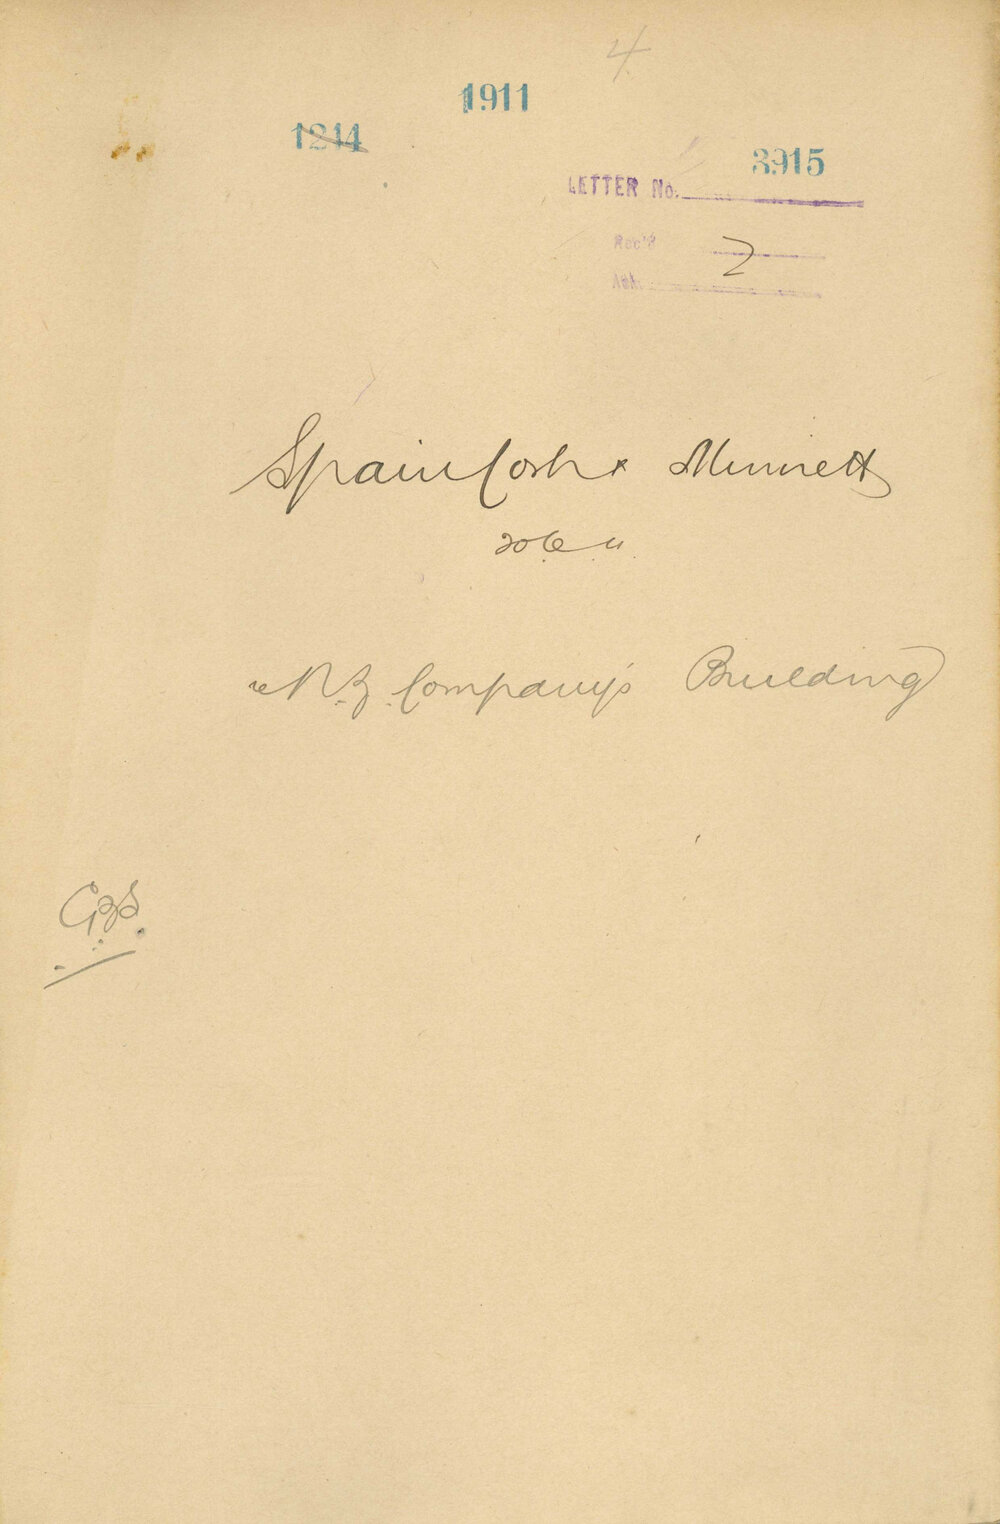 4
1911
1214
3915
LETTER No.
Rec'd
2
Ack.
Spain Cosh & Minnett
20.6.11.
re N.Z. Company's Building